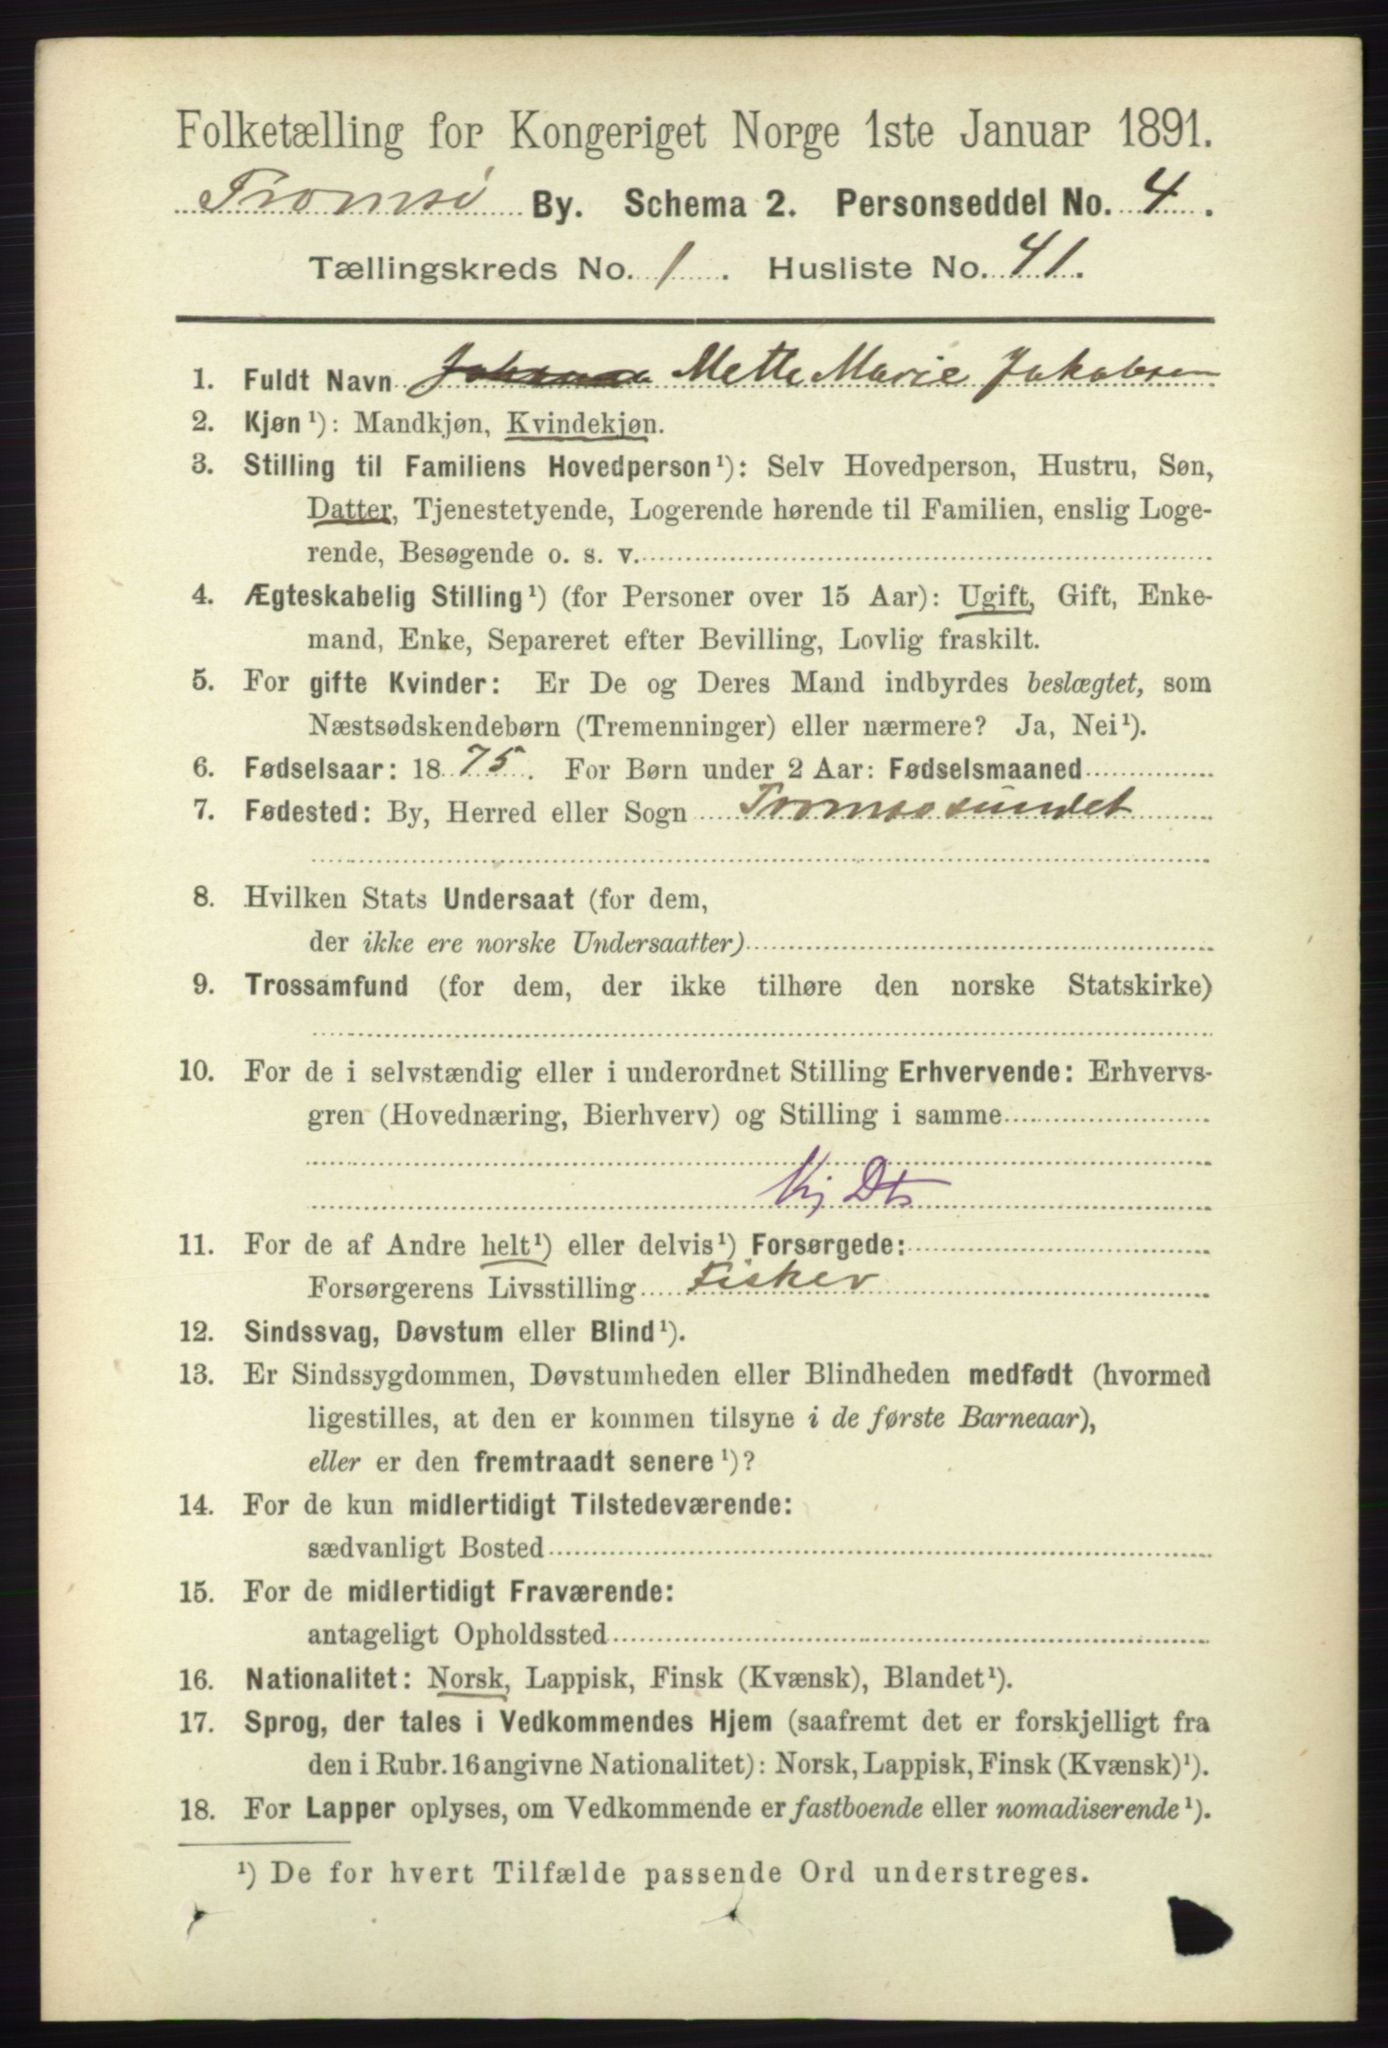 Folketælling for Kongeriget Norge 1ste Januar 1891.
Tromsø By. Schema 2. Personseddel No. 4.
Tællingskreds No. 1. Husliste No. 41.
1. Fuldt Navn Mette Marie Jakobsen
2. Kjøn ¹): Mandkjøn, Kvindekjøn.
3. Stilling til Familiens Hovedperson ¹): Selv Hovedperson, Hustru, Søn,
Datter, Tjenestetyende, Logerende hørende til Familien, enslig Loge-
rende, Besøgende o. s. v.
4. Ægteskabelig Stilling ¹) (for Personer over 15 Aar): Ugift, Gift, Enke-
mand, Enke, Separeret efter Bevilling, Lovlig fraskilt.
5. For gifte Kvinder: Er De og Deres Mand indbyrdes beslægtet, som
Næstsødskendebørn (Tremenninger) eller nærmere? Ja, Nei ¹).
6. Fødselsaar: 1875. For Børn under 2 Aar: Fødselsmaaned
7. Fødested: By, Herred eller Sogn Tromsøsundet
8. Hvilken Stats Undersaat (for dem,
der ikke ere norske Undersaatter)
9. Trossamfund (for dem, der ikke tilhøre den norske Statskirke)
10. For de i selvstændig eller i underordnet Stilling Erhvervende: Erhvervs-
gren (Hovednæring, Bierhverv) og Stilling i samme
Dts
11. For de af Andre helt ¹) eller delvis ¹) Forsørgede:
Forsørgerens Livsstilling Fisker
12. Sindssvag, Døvstum eller Blind ¹).
13. Er Sindssygdommen, Døvstumheden eller Blindheden medfødt (hvormed
ligestilles, at den er kommen tilsyne i de første Barneaar),
eller er den fremtraadt senere ¹)?
14. For de kun midlertidigt Tilstedeværende:
sædvanligt Bosted
15. For de midlertidigt Fraværende:
antageligt Opholdssted
16. Nationalitet: Norsk, Lappisk, Finsk (Kvænsk), Blandet ¹).
17. Sprog, der tales i Vedkommendes Hjem (saafremt det er forskjelligt fra
den i Rubr. 16 angivne Nationalitet): Norsk, Lappisk, Finsk (Kvænsk) ¹).
18. For Lapper oplyses, om Vedkommende er fastboende eller nomadiserende ¹).
¹) De for hvert Tilfælde passende Ord understreges.